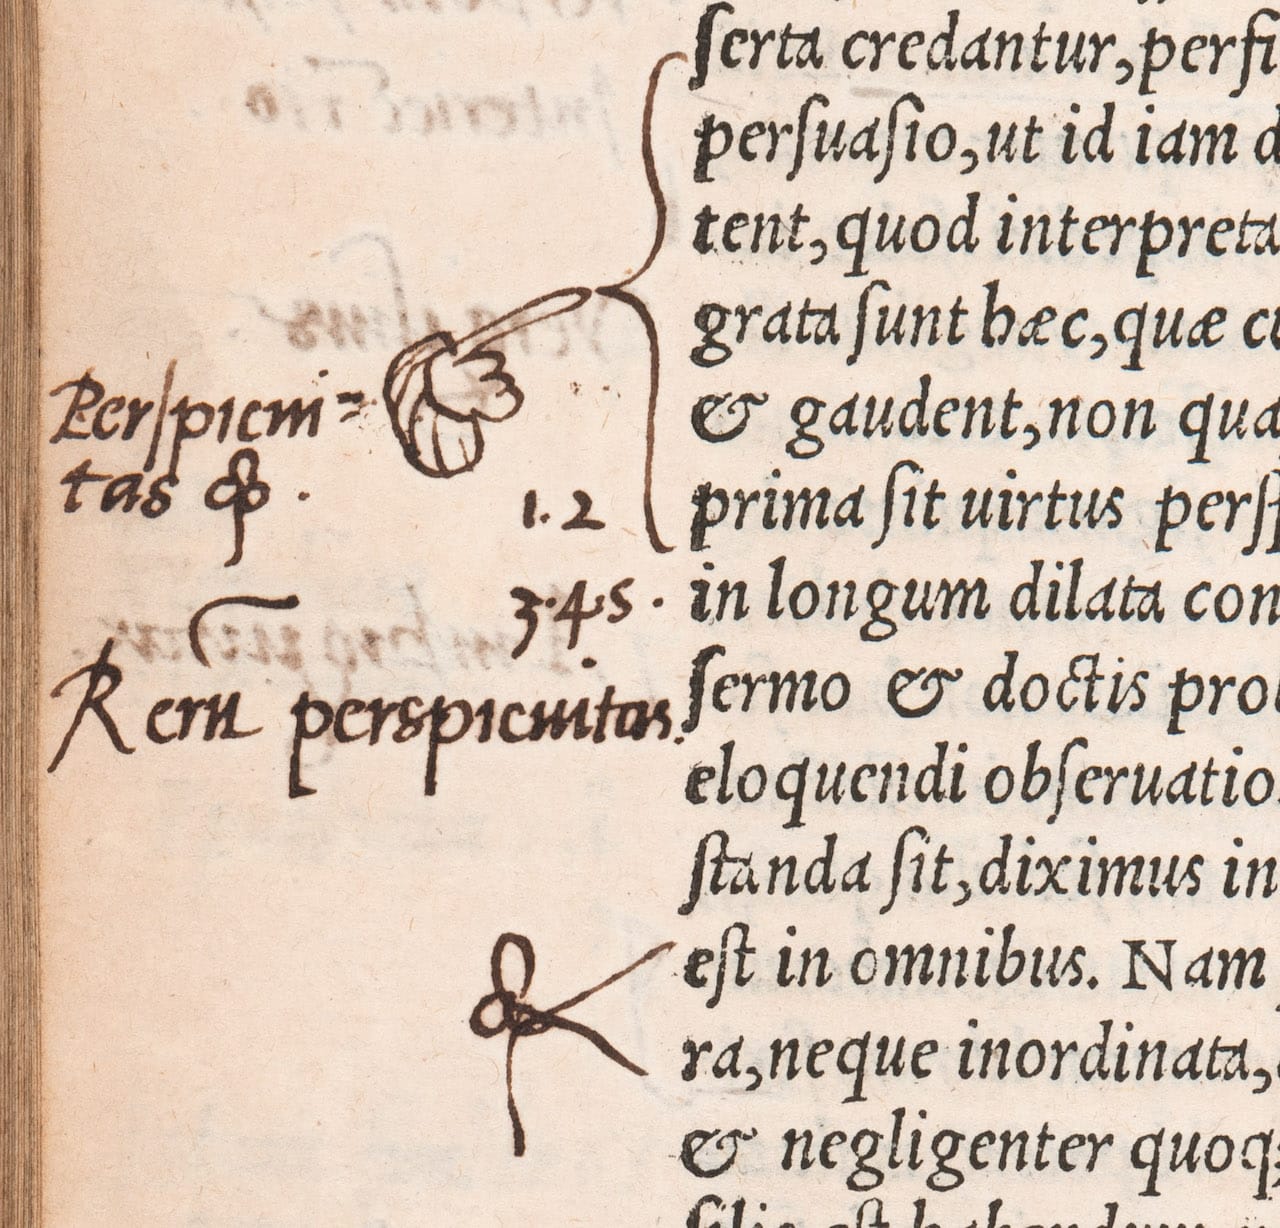 ſerta credantur, perfi
perſuaſio, ut id iam d
tent, quod interpreta
grata ſunt hæc, quæ cu
& gaudent, non qua
prima ſit uirtus perſp
in longum dilata con
ſermo & doctis pro
eloquendi obſeruatio
ſtanda ſit, diximus in
eſt in omnibus. Nam
ra, neque inordinata,
& negligenter quoq;
Perſpicui=
tas
1. 2
3. 4. 5.
Rerū perspicuitas.